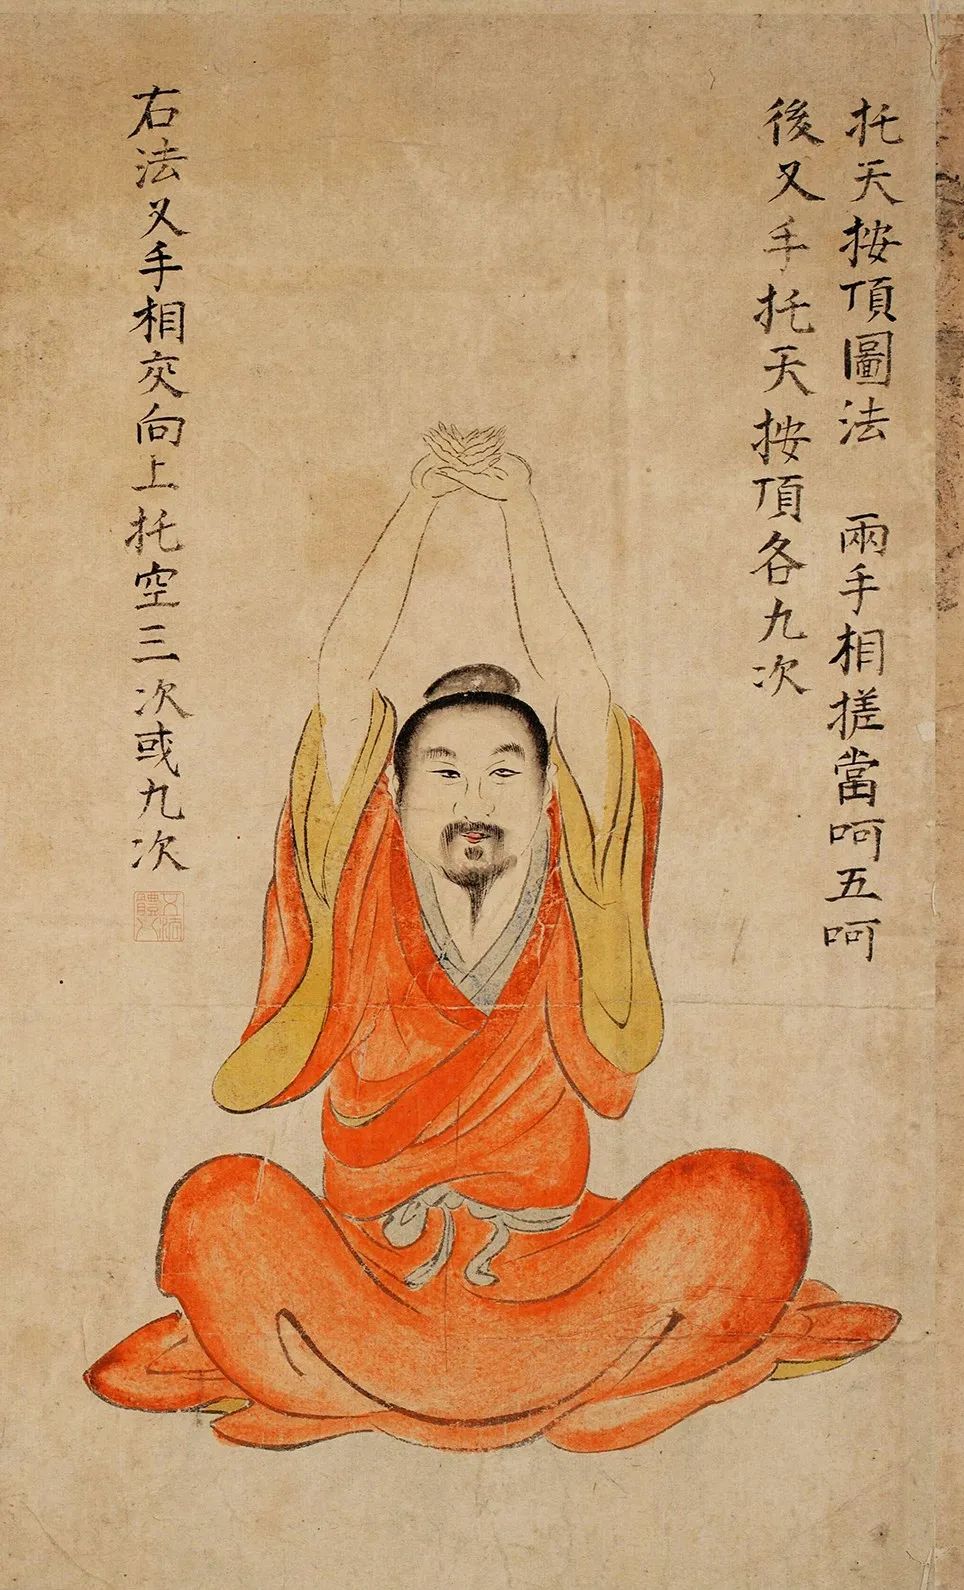 托天按頂圖法 兩手相搓當呵五呵
後又手托天按頂各九次
右法又手相交向上托空三次或九次